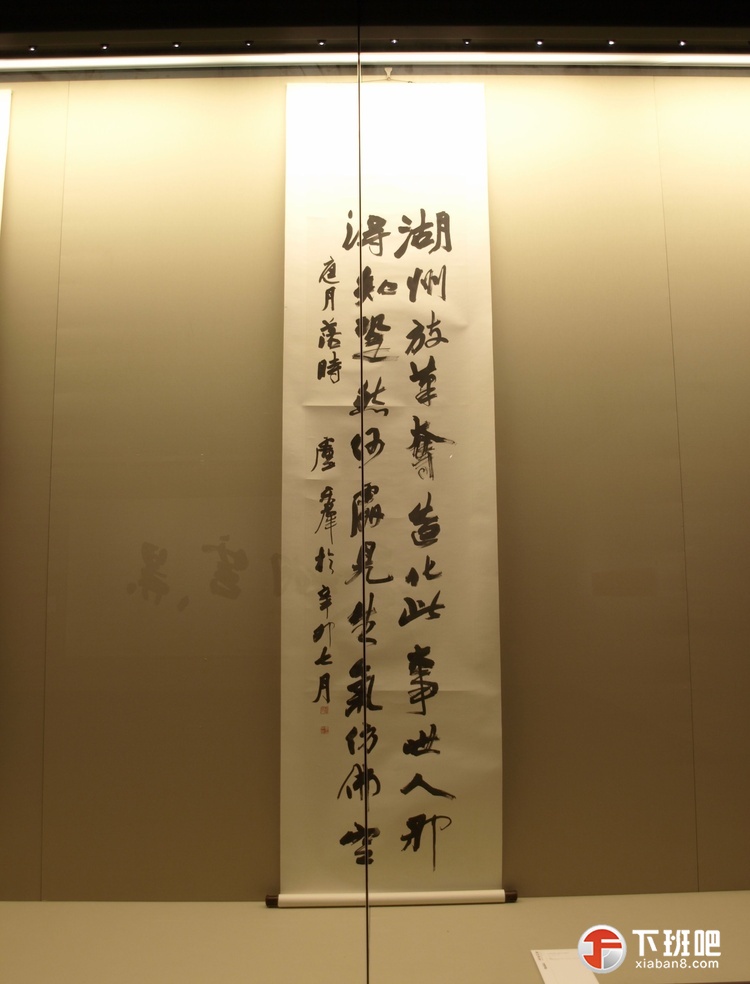 湖州放筆奪造化此事世人那
得知跫然何處見生氣仿佛空
庭月落時
於辛卯七月
下班吧
xiaban8.com